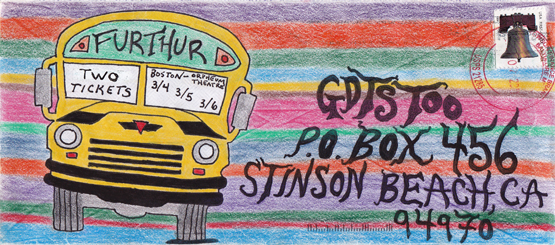 FURTHUR
TWO
TICKETS
BOSTON- ORPHEUM
THEATRE
3/4 3/5 3/6
GDTS TOO
P.O. BOX 456
STINSON BEACH, CA
94970